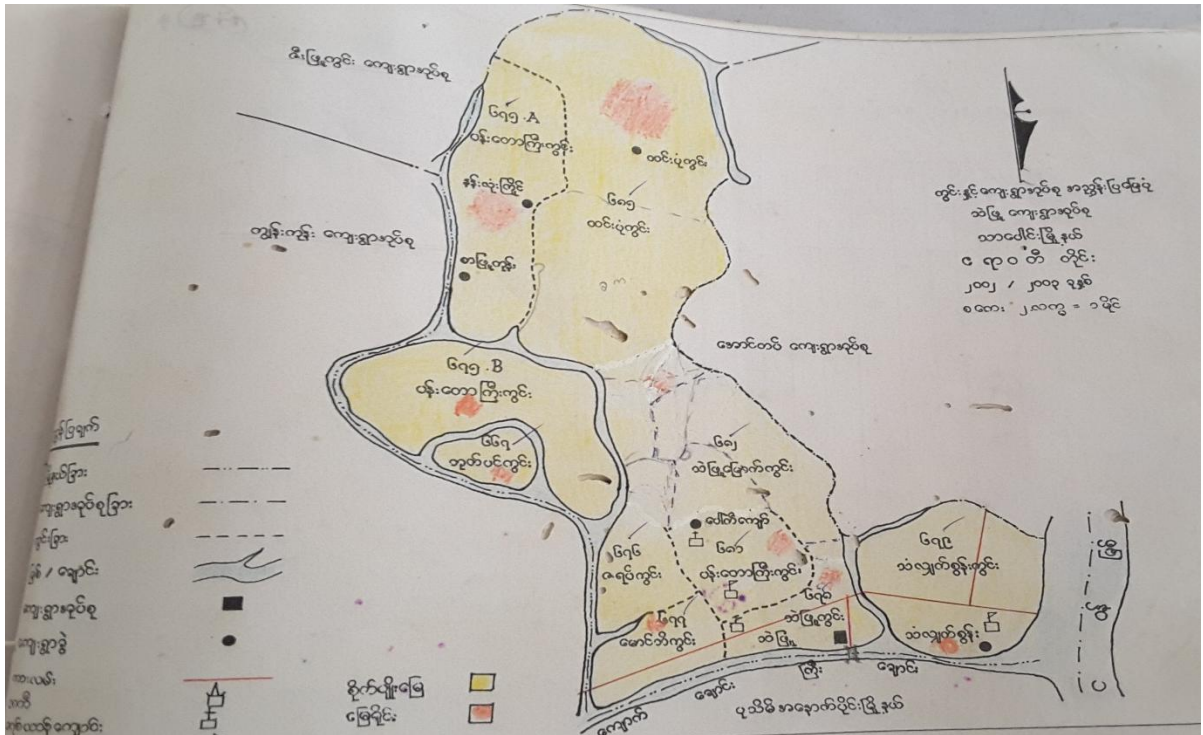 ဇီးဖြူကွင်း ကျေးရွာအုပ်စု
၆၇၅.A
ပန်းတောကြီးကွင်း
ထင်းပုံကွင်း
နန်းလုံးကြိုင်
၆၈၅
ထင်းပုံကွင်း
ကျွန်းကုန်း ကျေးရွာအုပ်စု
စာဖြူကုန်း
ကွင်းနှင့်ကျေးရွာအုပ်စု အညွှန်းပြမြေပုံ
သဲဖြူ ကျေးရွာအုပ်စု
သာပေါင်းမြို့နယ်
ဧရာဝတီ တိုင်း
၂၀၀၂ / ၂၀၀၃ ခုနှစ်
စကေး ၂လက္မ = ၁မိုင်
အောင်တပ် ကျေးရွာအုပ်စု
၆၇၅.B
ပန်းတောကြီးကွင်း
၆၆၇
ဘုတ်ပင်ကွင်း
၆၈၂
သဲဖြူမြောက်ကွင်း
ပေါ်တီကျော်
၆၇၆
ဇရပ်ကွင်း
၆၈၁
ပန်းတောကြီးကွင်း
၆၇၉
သံလျှက်စွန်းကွင်း
၆၇၇
မောင်ဘိကွင်း
၆၇၈
သဲဖြူကွင်း
သဲဖြူ
သံလျှက်စွန်း
ကျောက် ချောင်း ကြီး ချောင်း
ပုသိမ်အနောက်ပိုင်းမြို့နယ်
ကျေးရွာအုပ်စုခြား
မြစ် / ချောင်း
ကျေးရွာအုပ်စု
ကျေးရွာခွဲ
ကားလမ်း
စိုက်ပျိုးမြေ
မြေရိုင်း